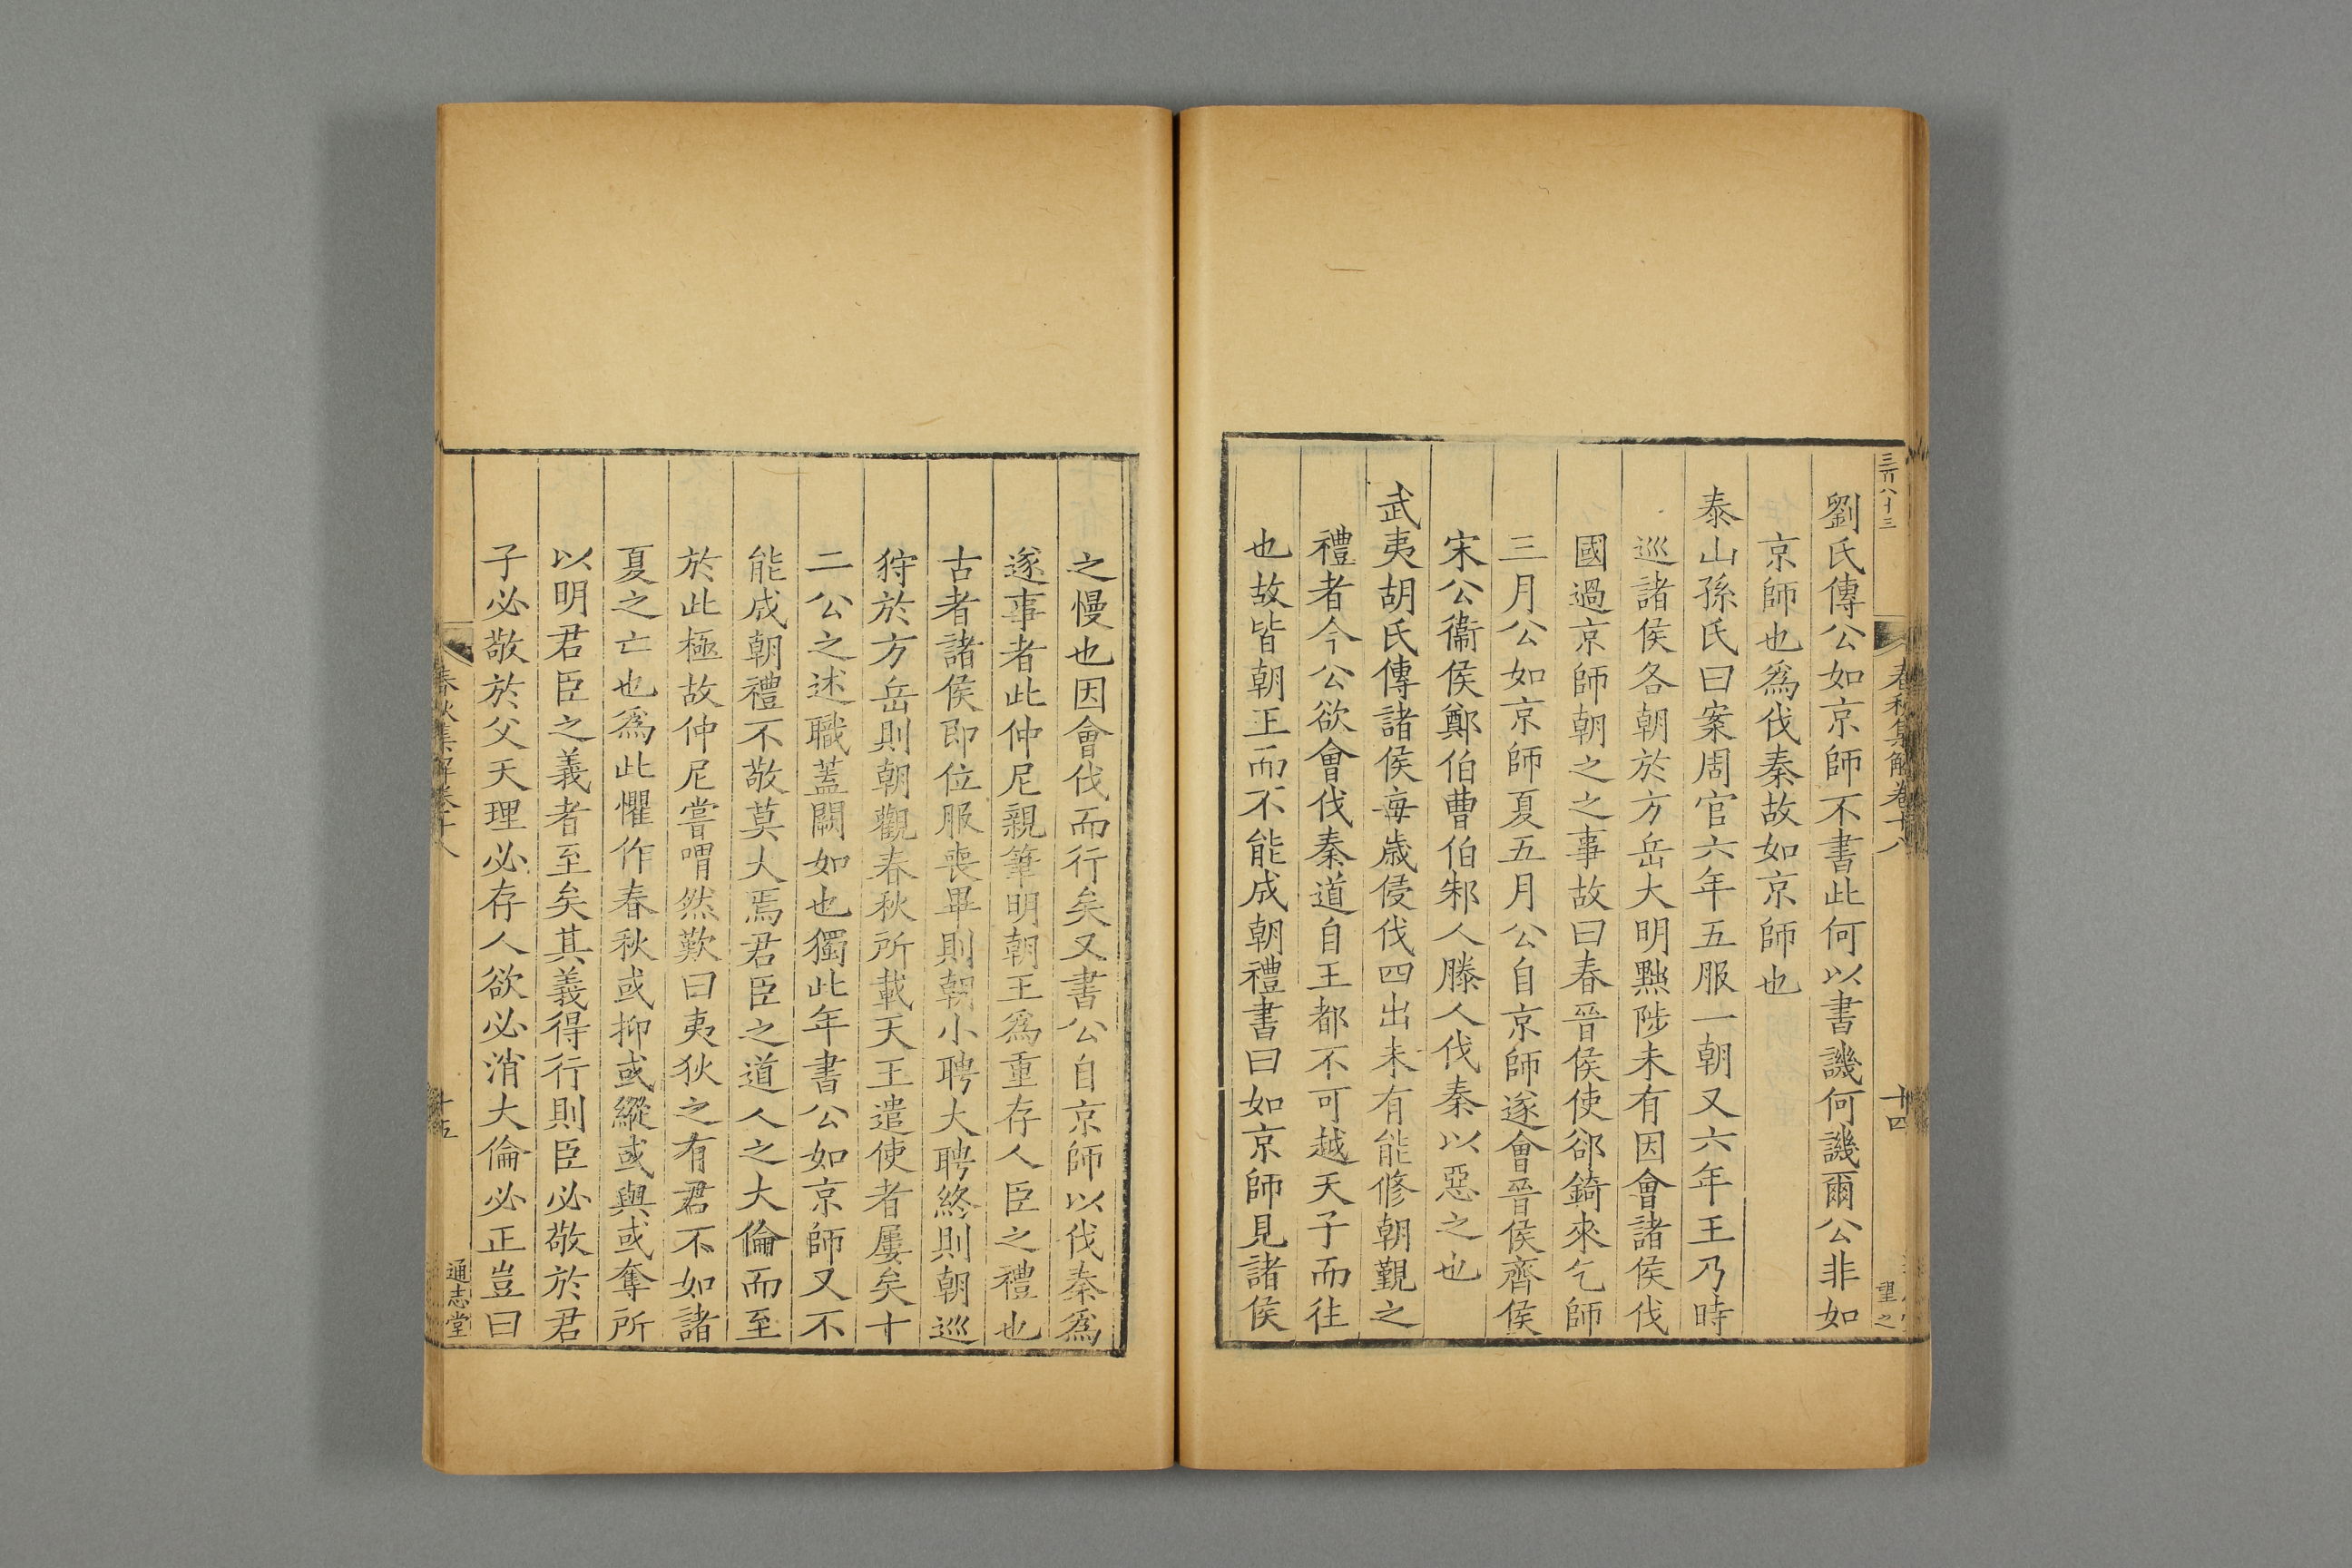 三百八十三
春秋集解卷十八
十四
望之
劉氏傳公如京師不書此何以書譏何譏爾公非如
京師也爲伐秦故如京師也
泰山孫氏曰案周官六年五服一朝又六年王乃時
巡諸侯各朝於方岳大明黜陟未有因會諸侯伐
國過京師朝之之事故曰春晉侯使郤錡來乞師
三月公如京師夏五月公自京師遂會晉侯齊侯
宋公衞侯鄭伯曹伯邾人滕人伐秦以惡之也
武夷胡氏傳諸侯每歲侵伐四出未有能修朝覲之
禮者今公欲會伐秦道自王都不可越天子而往
也故皆朝王而不能成朝禮書曰如京師見諸侯
之慢也因會伐而行矣又書公自京師以伐秦爲
遂事者此仲尼親筆明朝王爲重存人臣之禮也
古者諸侯即位服喪畢則朝小聘大聘終則朝巡
狩於方岳則朝觀春秋所載天王遣使者屢矣十
二公之述職蓋闕如也獨此年書公如京師又不
能成朝禮不敬莫大焉君臣之道人之大倫而至
於此極故仲尼嘗喟然歎曰夷狄之有君不如諸
夏之亡也爲此懼作春秋或抑或縱或與或奪所
以明君臣之義者至矣其義得行則臣必敬於君
子必敬於父天理必存人欲必消大倫必正豈曰
春秋集解卷十八
十五
通志堂